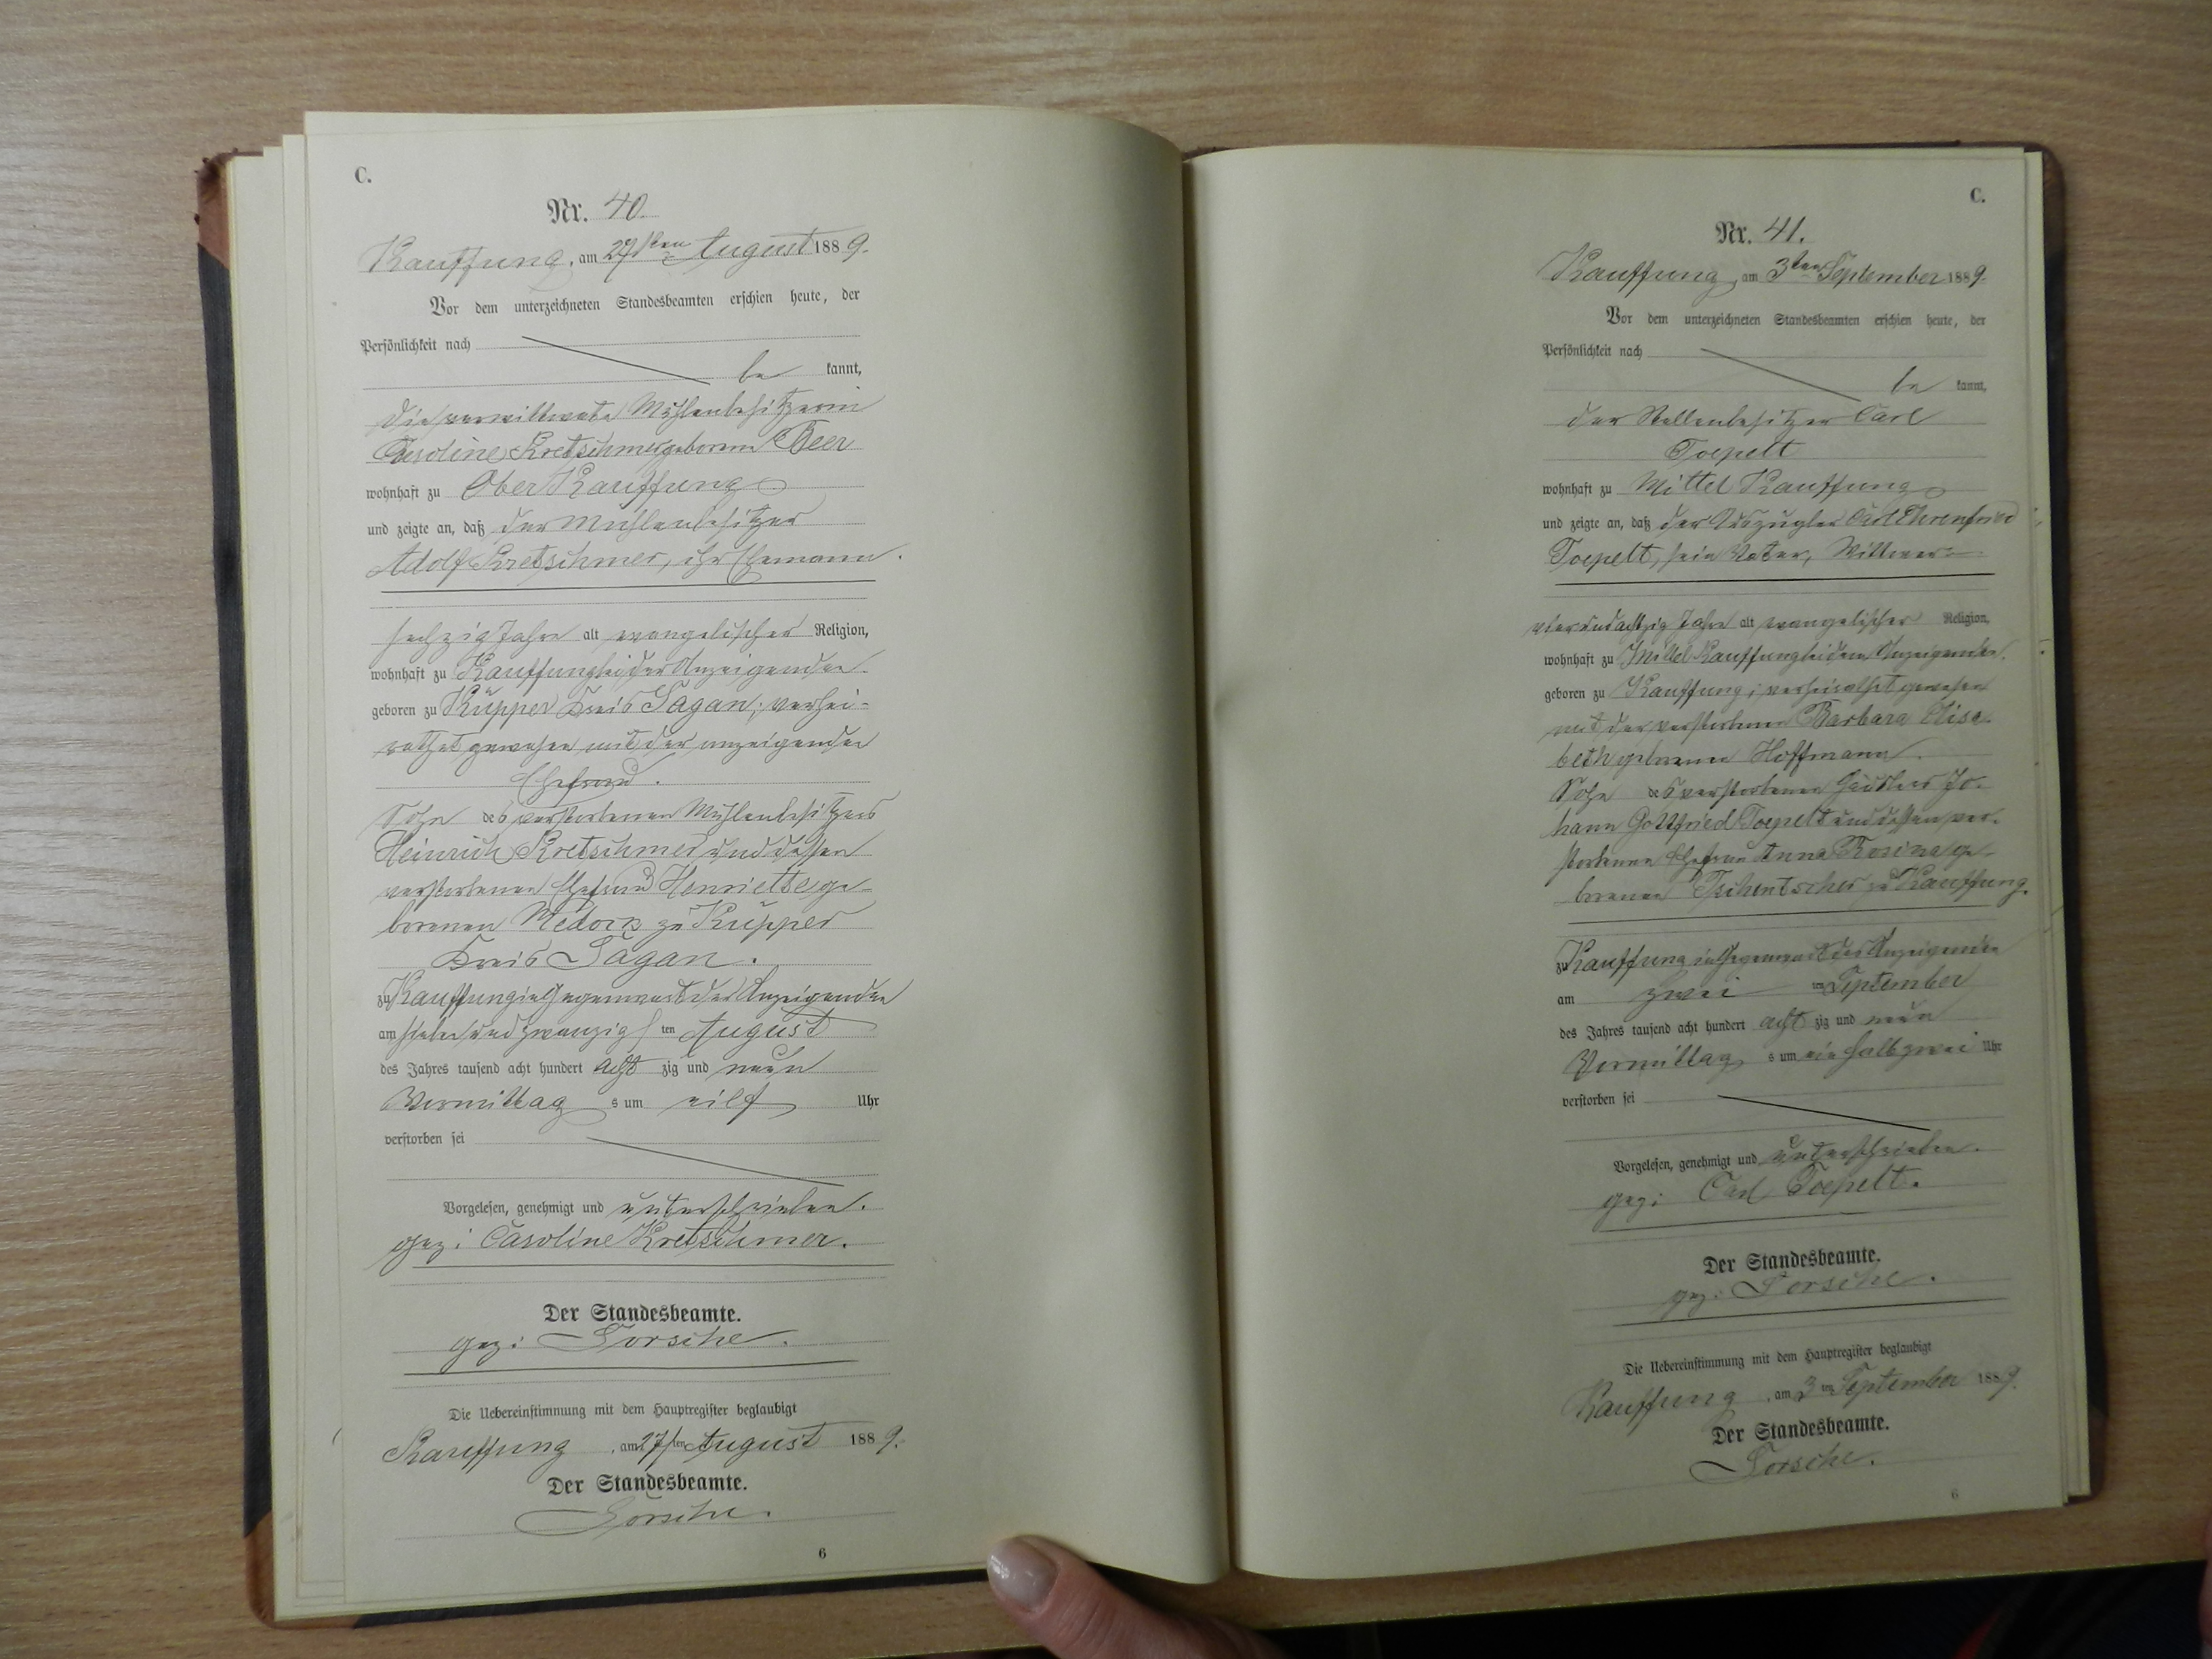 C.
Nr. 40
Kauffung, am 27sten August 1889.
Vor dem unterzeichneten Standesbeamten erschien heute, der
Persönlichkeit nach
be kannt,
die verwittwete Mühlenbesitzerin
Caroline Kretschmer geborene Beer
wohnhaft zu Ober Kauffung
und zeigte an, daß der Mühlenbesitzer
Adolf Kretschmer, ihr Ehemann.
sechzig Jahre alt, evangelischer Religion,
wohnhaft zu Kauffung bei der Anzeigenden
geboren zu Küpper Kreis Sagan; verhei-
rathet gewesen mit der anzeigenden
Ehefrau.
Sohn des verstorbenen Mühlenbesitzers
Heinrich Kretschmer und dessen
verstorbenen Ehefrau Henriette ge-
borenen zu Küpper
Kreis Sagan.
zu Kauffung in Gegenwart der Anzeigenden
am sieben und zwanzigsten August
des Jahres tausend acht hundert acht zig und neun
Vormittag s um eilf Uhr
verstorben sei
Vorgelesen, genehmigt und unterschrieben.
gez: Caroline Kretschmer.
Der Standesbeamte.
gez: Forsche.
Die Uebereinstimmung mit dem Hauptregister beglaubigt
Kauffung, am 27sten August 1889.
Der Standesbeamte.
Forsche.
6
C.
Nr. 41.
Kauffung, am 3ten September 1889.
Vor dem unterzeichneten Standesbeamten erschien heute, der
Persönlichkeit nach
be kannt,
der Stellenbesitzer Carl
Toepelt
wohnhaft zu Mittel Kauffung
und zeigte an, daß der Auszügler Carl Ehrenfried
Toepelt, sein Vater, Wittwer
vierundachtzig Jahre alt evangelischer Religion,
wohnhaft zu Mittel Kauffung bei dem Anzeigenden.
geboren zu Kauffung; verheirathet gewesen
mit der verstorbenen Barbara Elisa-
beth geborenen Hoffmann.
Sohn des verstorbenen Häuslers Jo-
hann Gottfried Toepelt und dessen ver-
storbenen Ehefrau Anna Rosina ge-
borenen Tschentscher zu Kauffung.
zu Kauffung in Gegenwart des Anzeigenden
am zwei ten September
des Jahres tausend acht hundert acht zig und neun
Vormittag s um ein halb zwei Uhr
verstorben sei
Vorgelesen, genehmigt und unterschrieben.
gez: Carl Toepelt.
Der Standesbeamte.
gez: Forsche.
Die Uebereinstimmung mit dem Hauptregister beglaubigt
Kauffung, am 3ten September 1889.
Der Standesbeamte.
Forsche.
6